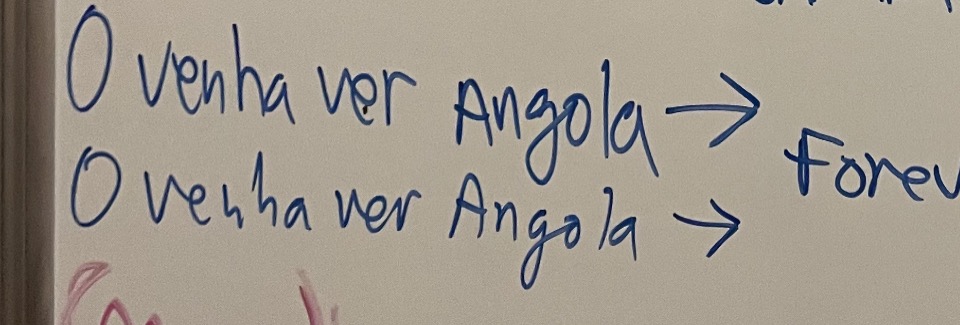 O venha ver Angola →
O venha ver Angola →